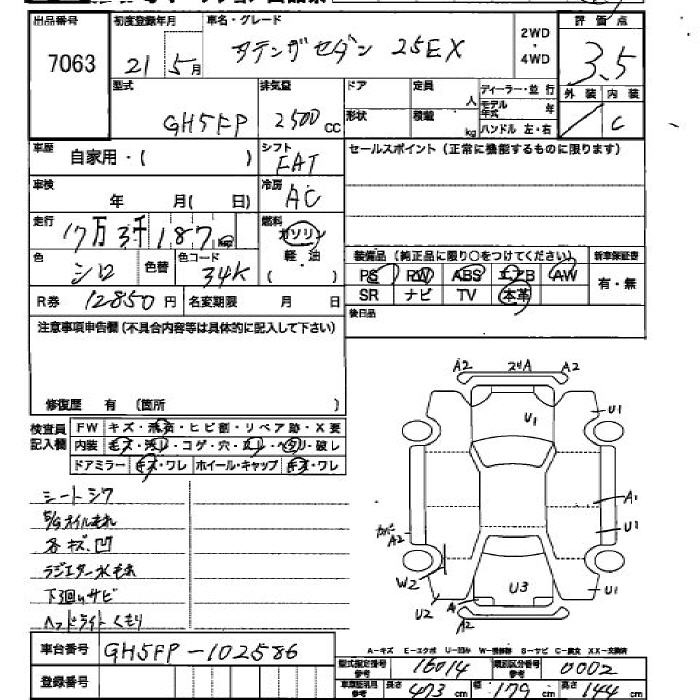 出品番号 初度登録年月 車名・グレード 2WD・4WD 評価点
7063 21年5月 アテンザセダン 25EX 3.5
型式 排気量 ドア 定員 人 ディーラー・並行 外装 内装
GH5FP 2500cc 形状 積載 kg モデル年式 年 ハンドル 左・右 C
車歴 自家用・( ) シフト FAT セールスポイント(正常に機能するものに限ります)
車検 年 月( 日) 冷房 AC
走行 17万3千187km 燃料 ガソリン 軽・油 ( )
色 シロ 色替 色コード 34K 装備品(純正品に限り○をつけてください) 新車保証書
PS PW ABS エアB AW 有・無
R券 12850円 名変期限 月 日 SR ナビ TV 本革
注意事項申告欄(不具合内容等は具体的に記入して下さい) 後日品
修復歴 有 (箇所 )
検査員記入欄 FW キズ・補修・ヒビ割・リペア跡・X要
内装 モズ・汚レ・コゲ・穴・スレ・ヘタリ・破レ
ドアミラー キズ・ワレ ホイール・キャップ キズ・ワレ
A2 A2
U1 U1
A1
カバー A2 U1
W2 U3 U1
U2 A
シートシワ
各キズ、凹
ラジエター水もれ
下廻りサビ
ヘッドライトくもり
A-キズ E-エクボ U-凹み W-補修跡 S-サビ C-腐食 XX-交換済
車台番号 GH5FP-102586
型式指定番号 参考 16014 類別区分番号 参考 0002
登録番号
長さ 473cm 幅 179cm 高さ 144cm